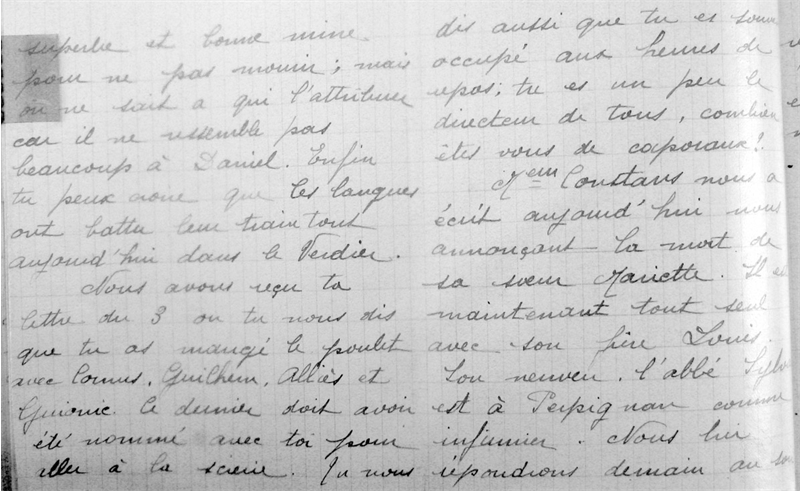 superbe et bonne mine
pour ne pas mourir; mais
on ne sait a qui l'attribuer
car il ne ressemble pas
beaucoup à Daniel. Enfin
tu peux croire que les langues
ont battu leur train tout
aujourd'hui dans le Verdier.
Nous avons reçu ta
lettre du 3 ou tu nous dis
que tu as mangé le poulet
avec Comus, Guilhem, Alliès et
Guionie. Ce dernier doit avoir
été nommé avec toi pour
aller à la scierie. Tu nous
dis aussi que tu es
occupé aux heures de
repos; tu es un peu le
directeur de tous, combien
êtes vous de caporaux!
Constans nous a
écrit aujourd'hui nous
annonçant la mort de
sa soeur Mariette. Il
maintenant tout seul
avec son Louis.
Son neveu, l'abbé
est à Perpignan comme
infirmier. Nous lui
répondrons demain au